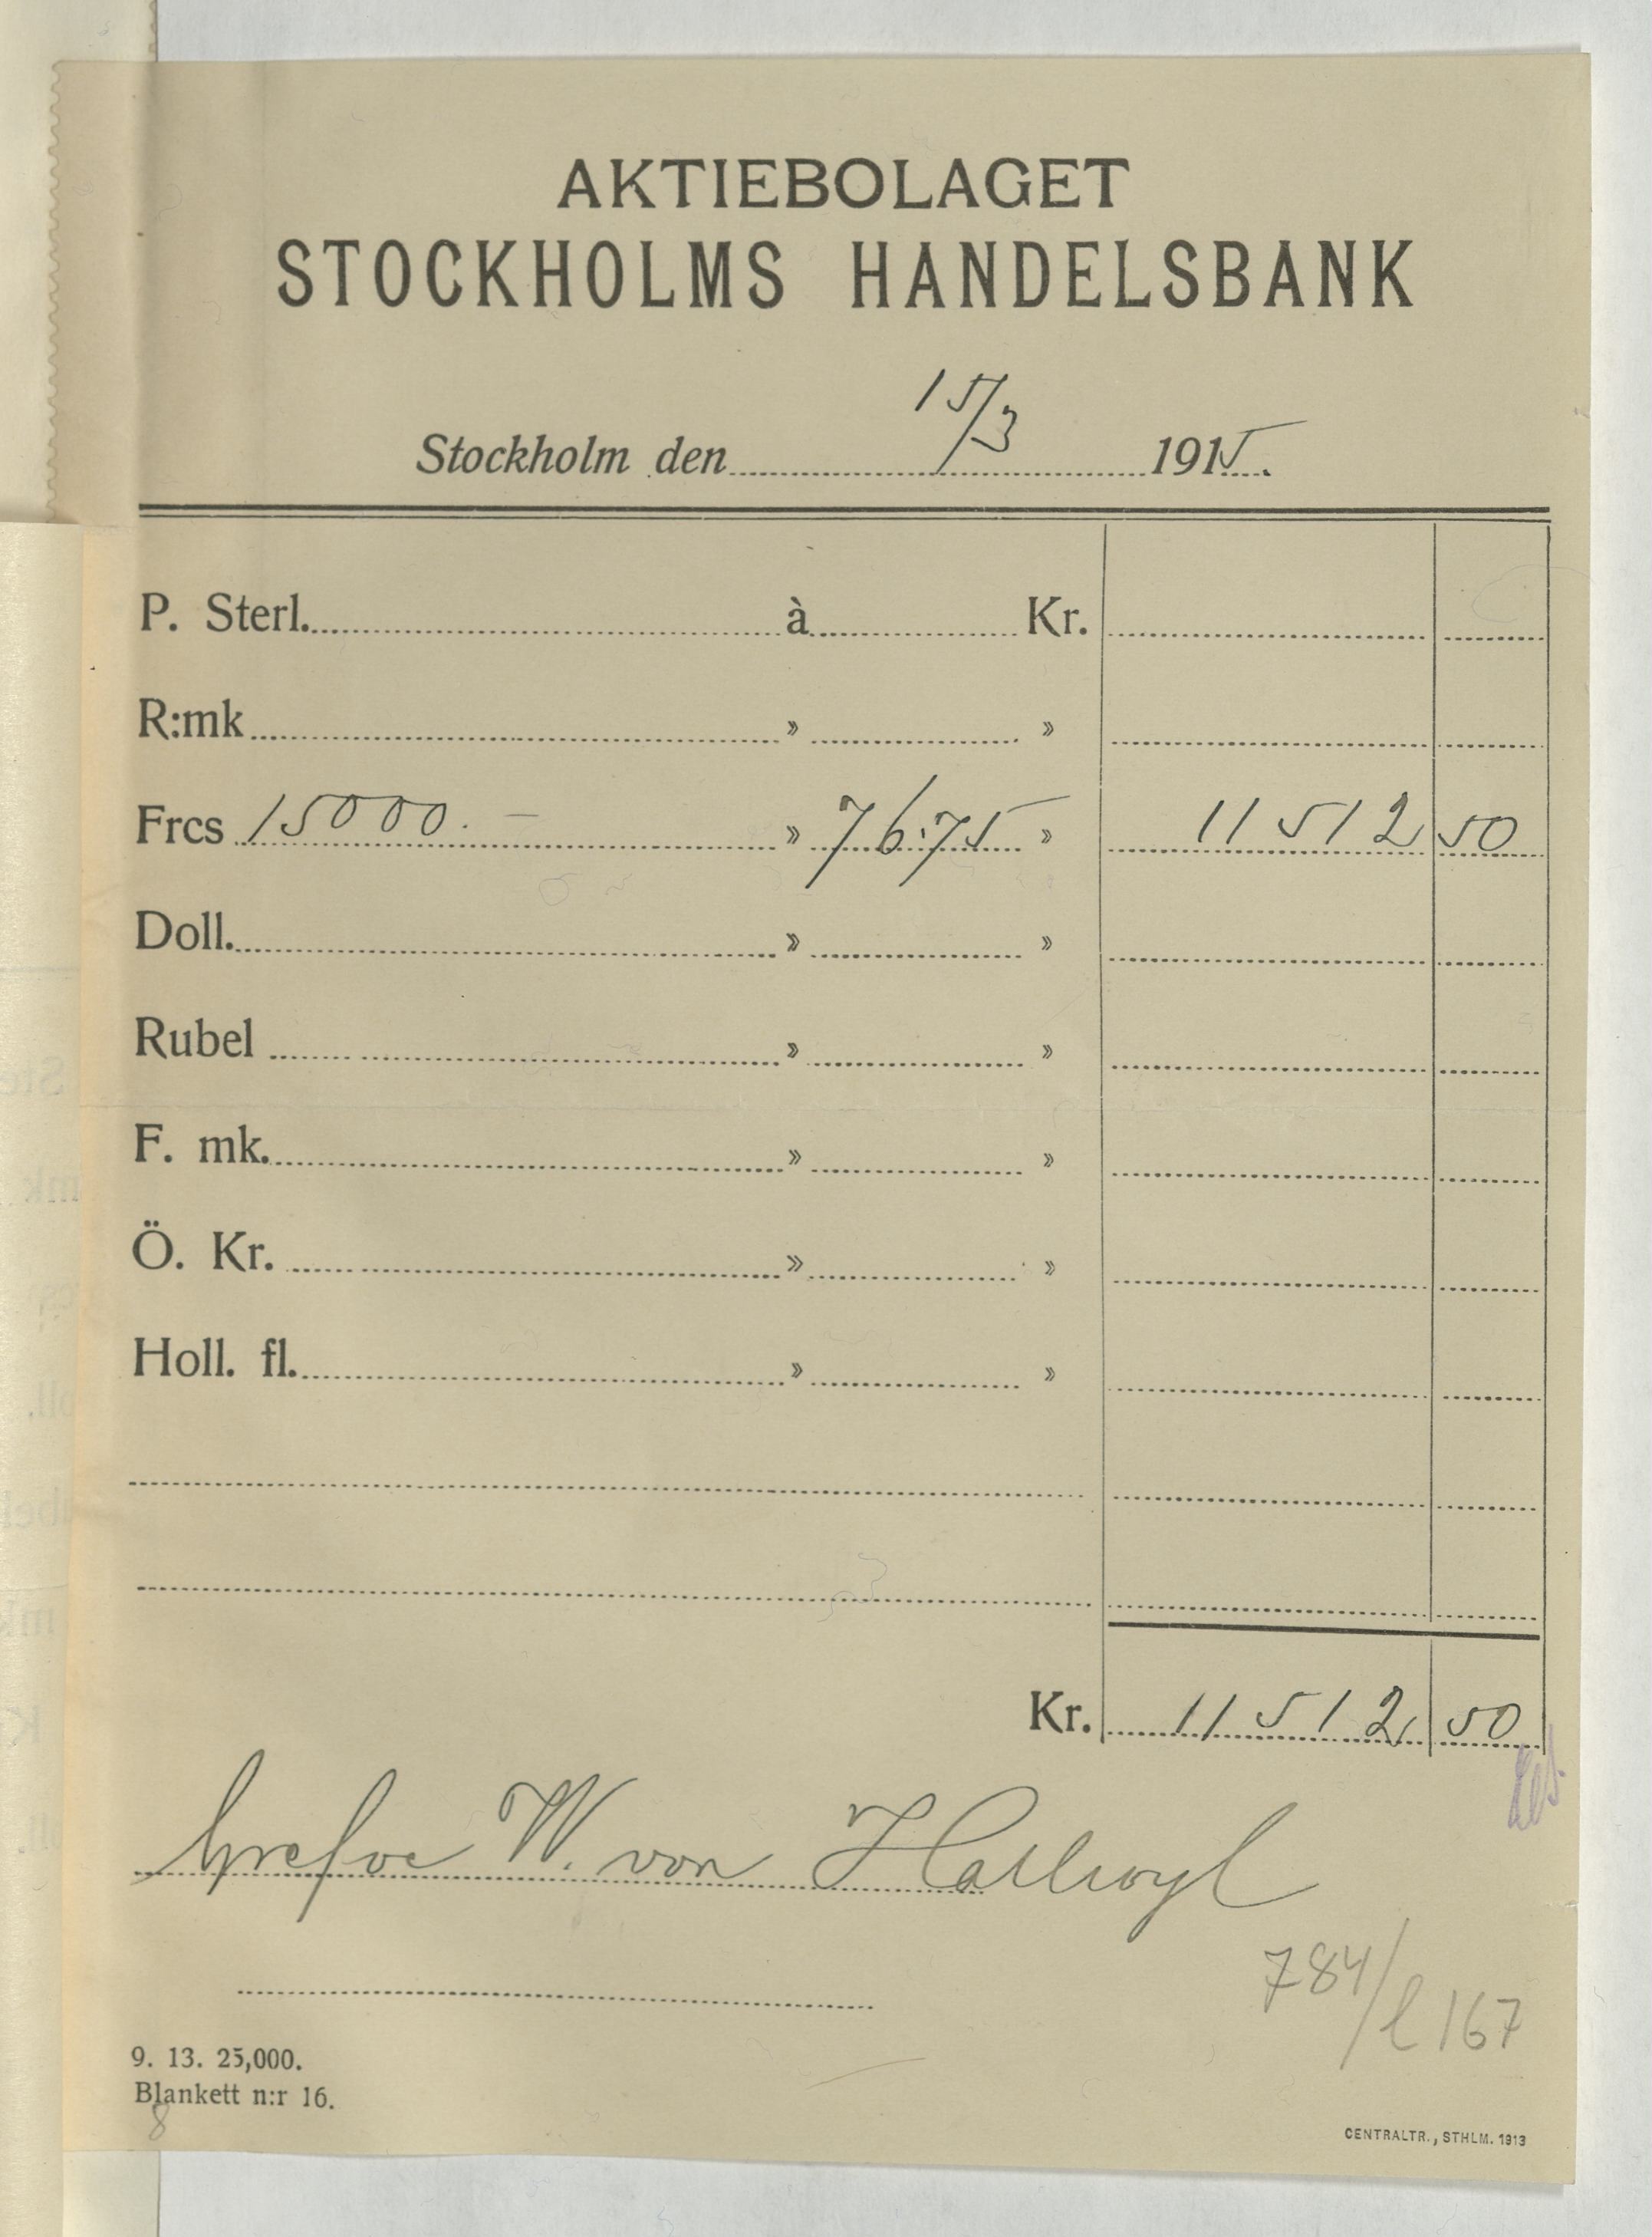 AKTIEBOLAGET
STOCKHOLMS HANDELSBANK
Stockholm den 15/3 1915.
P. Sterl. à Kr.
R:mk » »
Frcs 15000. — » 76:75 » 11512 50
Doll. » »
Rubel » »
F. mk. » »
Ö. Kr. » »
Holl. fl. » »
Kr. 11512 50
Grefve W. von Hallwyl
784/l 167
9. 13. 25,000.
Blankett n:r 16.
8
CENTRALTR., STHLM. 1913